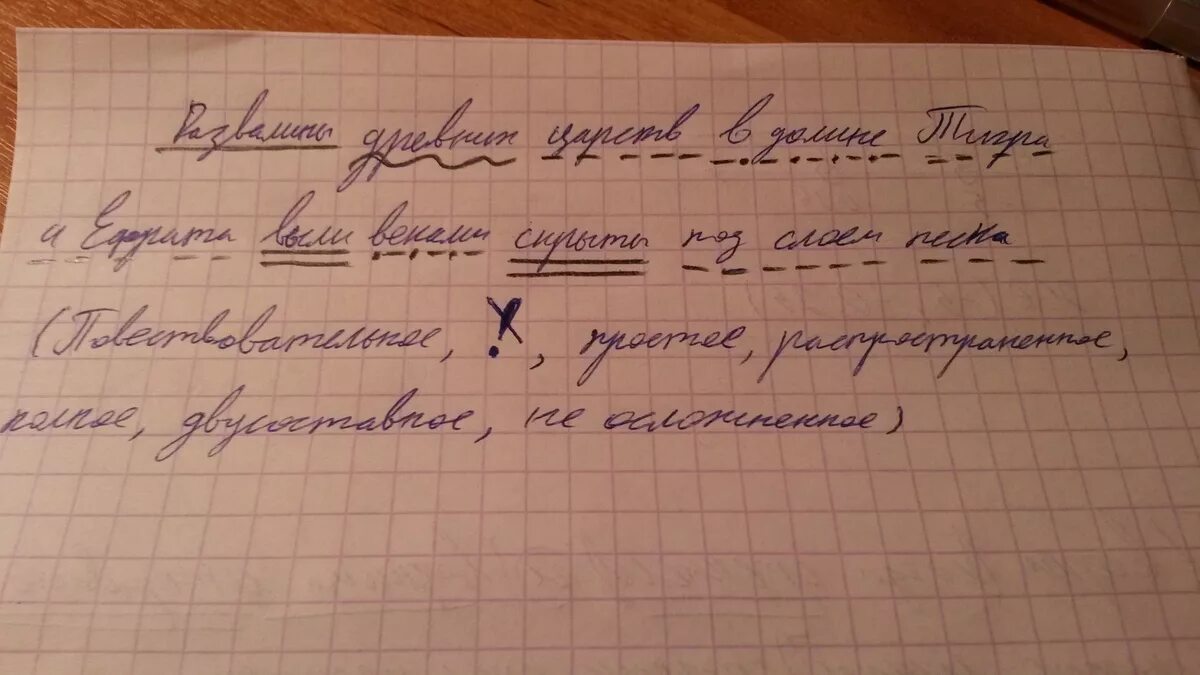 Развалины древних царств в долине Тигра
и Ефрата были веками скрыты под слоем песка
(Повествовательное, , простое, распространенное,
полное, двусоставное, не осложненное)